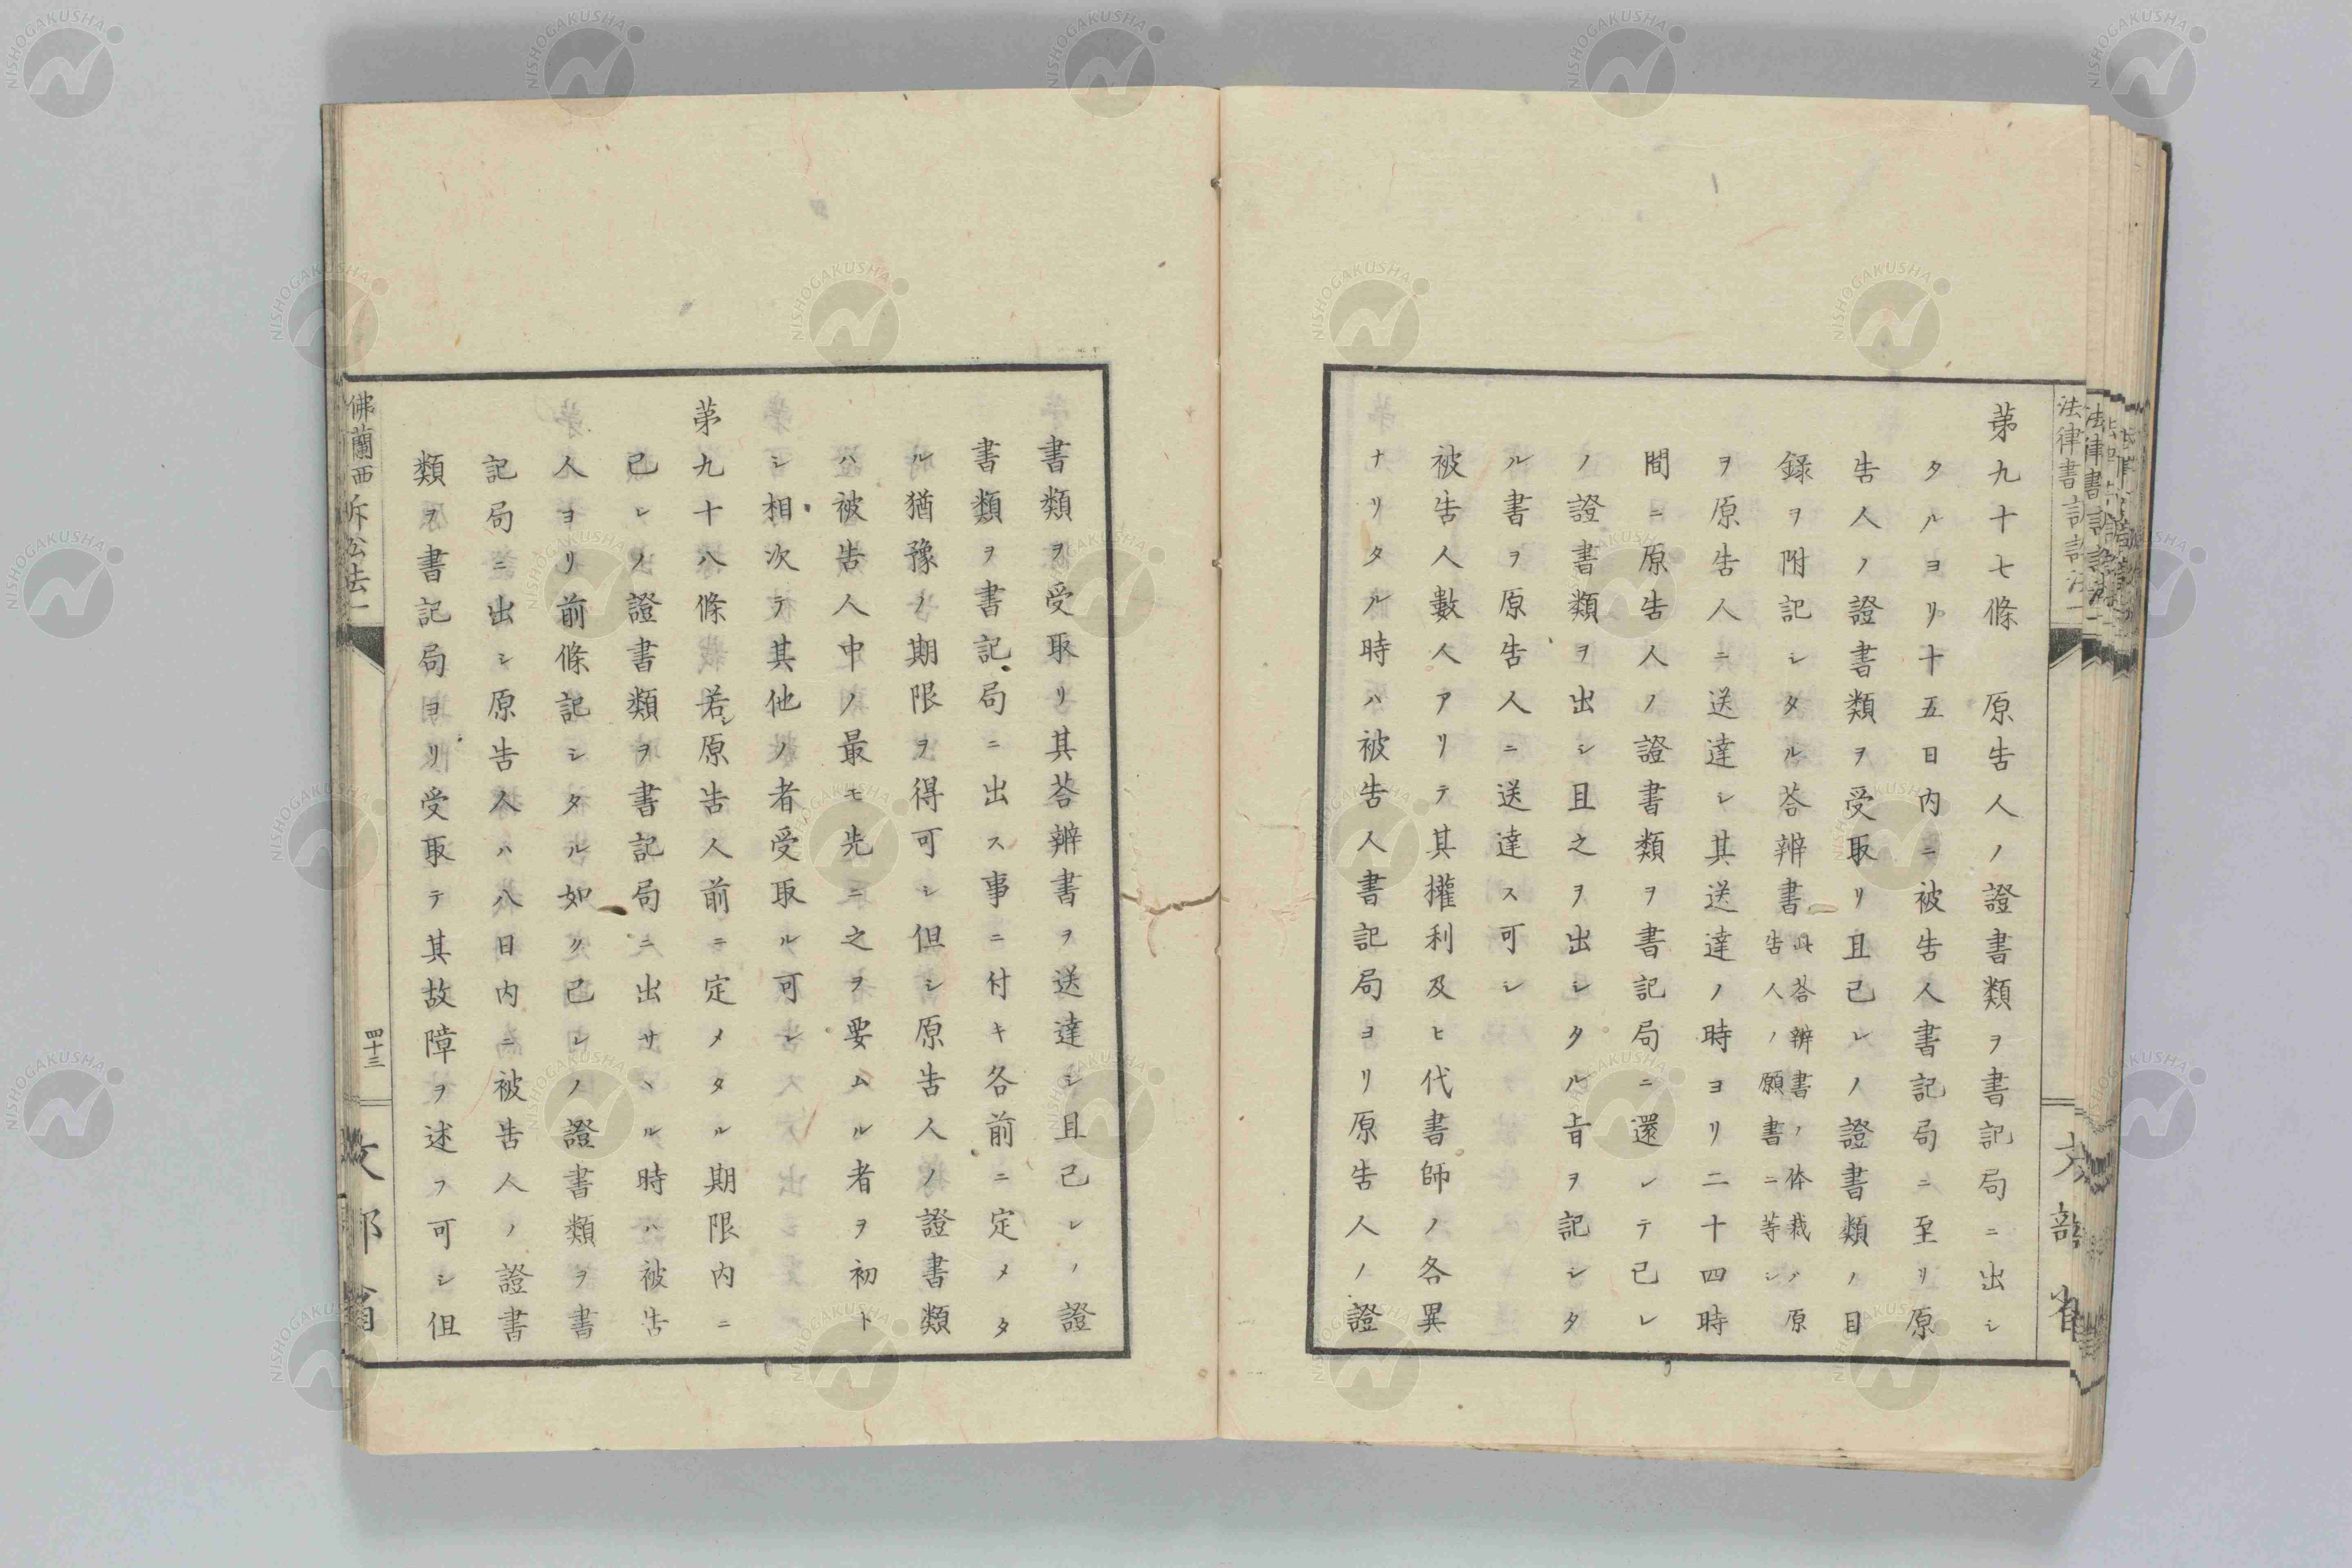 第九十七條　原告人ノ證書類ヲ書記局ニ出シ
タルヨリ十五日内ニ被告人書記局ニ至リ原
告人ノ證書類ヲ受取リ且己レノ證書類ノ目
録ヲ附記シタル荅辨書此荅辨書ノ体裁ハ原
告人ノ願書ニ等シ
ヲ原告人ニ送達シ其送達ノ時ヨリ二十四時
間ニ原告人ノ證書類ヲ書記局ニ還シテ己レ
ノ證書類ヲ出シ且之ヲ出シタル旨ヲ記シタ
ル書ヲ原告人ニ送達ス可シ
被告人數人アリテ其權利及ヒ代書師ノ各異
ナリタル時ハ被告人書記局ヨリ原告人ノ證
書類ヲ受取リ其荅辨書ヲ送達シ且己レノ證
書類ヲ書記局ニ出ス事ニ付キ各前ニ定メタ
ル猶豫ノ期限ヲ得可シ但シ原告人ノ證書類
ハ被告人中ノ最モ先ニ之ヲ要ムル者ヲ初ト
シ相次テ其他ノ者受取ル可シ
第九十八條　若シ原告人前ニ定メタル期限内ニ
己レノ證書類ヲ書記局ニ出サヽル時ハ被告
人ヨリ前條記シタル如ク己レノ證書類ヲ書
記局ニ出シ原告人ハ八日内ニ被告人ノ證書
類ヲ書記局ヨリ受取テ其故障ヲ述フ可シ但
佛蘭西訴訟法一
四十三
文部省
NISHOGAKUSHA